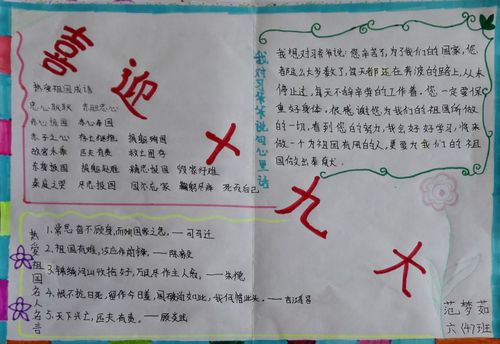 喜迎十九大
热爱祖国成语
忠心耿耿 赤胆忠心
赤心报国 赤心奉国
赤子之心
故宫禾黍 匹夫有责 救亡图存
精忠报国 毁家纾难
秦庭之哭 尽忠报国 国尔忘家 鞠躬尽瘁
我对习爷爷说句心里话
我想对习爷爷说：您辛苦了，为了我们的国家，您
都这么大岁数了，每天都还在奔波的路上，从未
停止过，每天不辞辛劳的工作着。您一定要保
重好身体，很感谢您为我们的祖国所做
的一切。看到您的努力，我会好好学习，将来
做一个为祖国有用的人，更要为我们的祖
国做出奉献。
热爱祖国名人名言
1、常思奋不顾身，而殉国家之急。——司马迁
2、祖国有难，汝应作前锋。——陈毅
3、锦绣河山收拾好，万民尽作主人翁。——朱德
4、恨不抗日死，留作今日羞。国破尚如此，我何惜此头。——吉鸿昌
5、天下兴亡，匹夫有责。——顾炎武
范梦茹
六（47）班